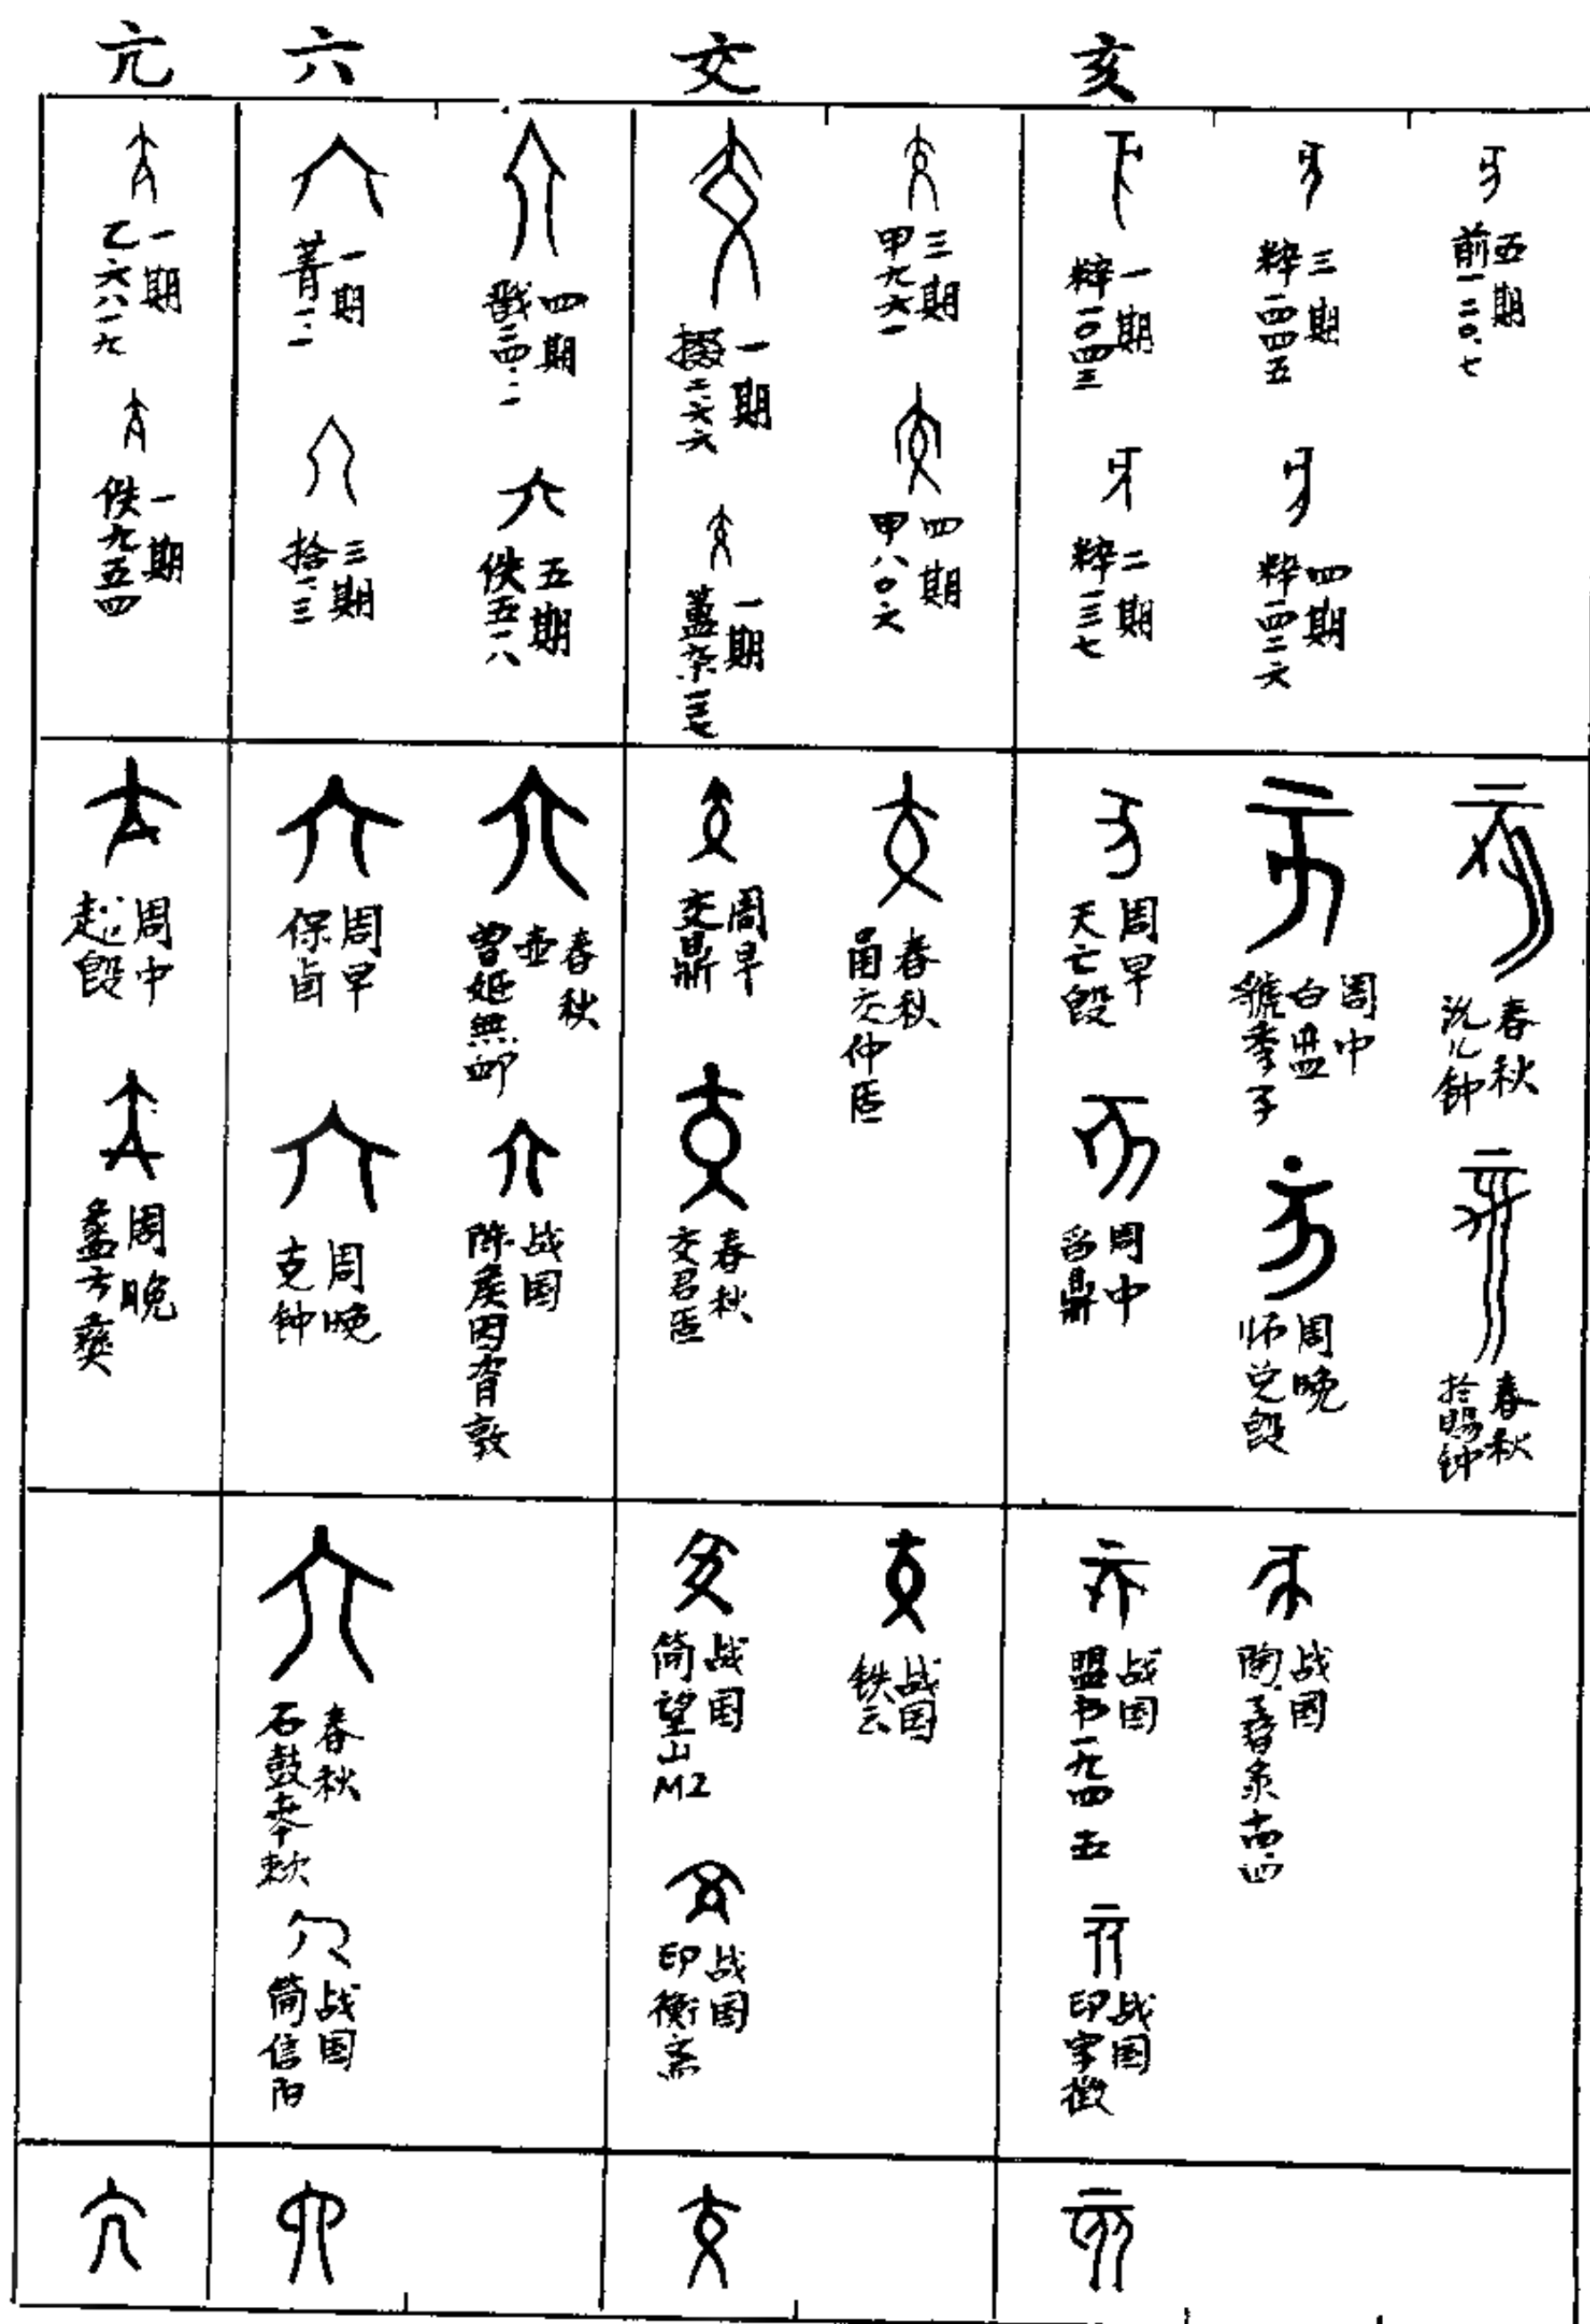 亢 六 交 亥
一期
乙六八一九
一期
佚九五四
一期
菁一·一
三期
拾一·三
四期
戬三四·一
五期
佚五一八
一期
掇二·六六
一期
三期
甲九六一
四期
甲八〇六
一期
粹一〇四三
二期
粹一三七
三期
粹一四四五
四期
粹一四二六
五期
前一·二〇·七
周中
趩𣪘
周晚
盠方彝
周早
保卣
周晚
克钟
春秋
曾姬無卹壶
战国
陈侯因𬁼敦
周早
交鼎
春秋
交君𠤳
春秋
甫交仲𠤳
周早
天亡𣪘
周中
舀鼎
周中
虢季子白盘
周晚
师兑𣪘
春秋
沇儿钟
春秋
春秋
石鼓奉敕
战国
简信阳
战国
简望山M2
战国
印衡斋
战国
铁云
战国
盟书一九四 五
战国
印字徵
战国